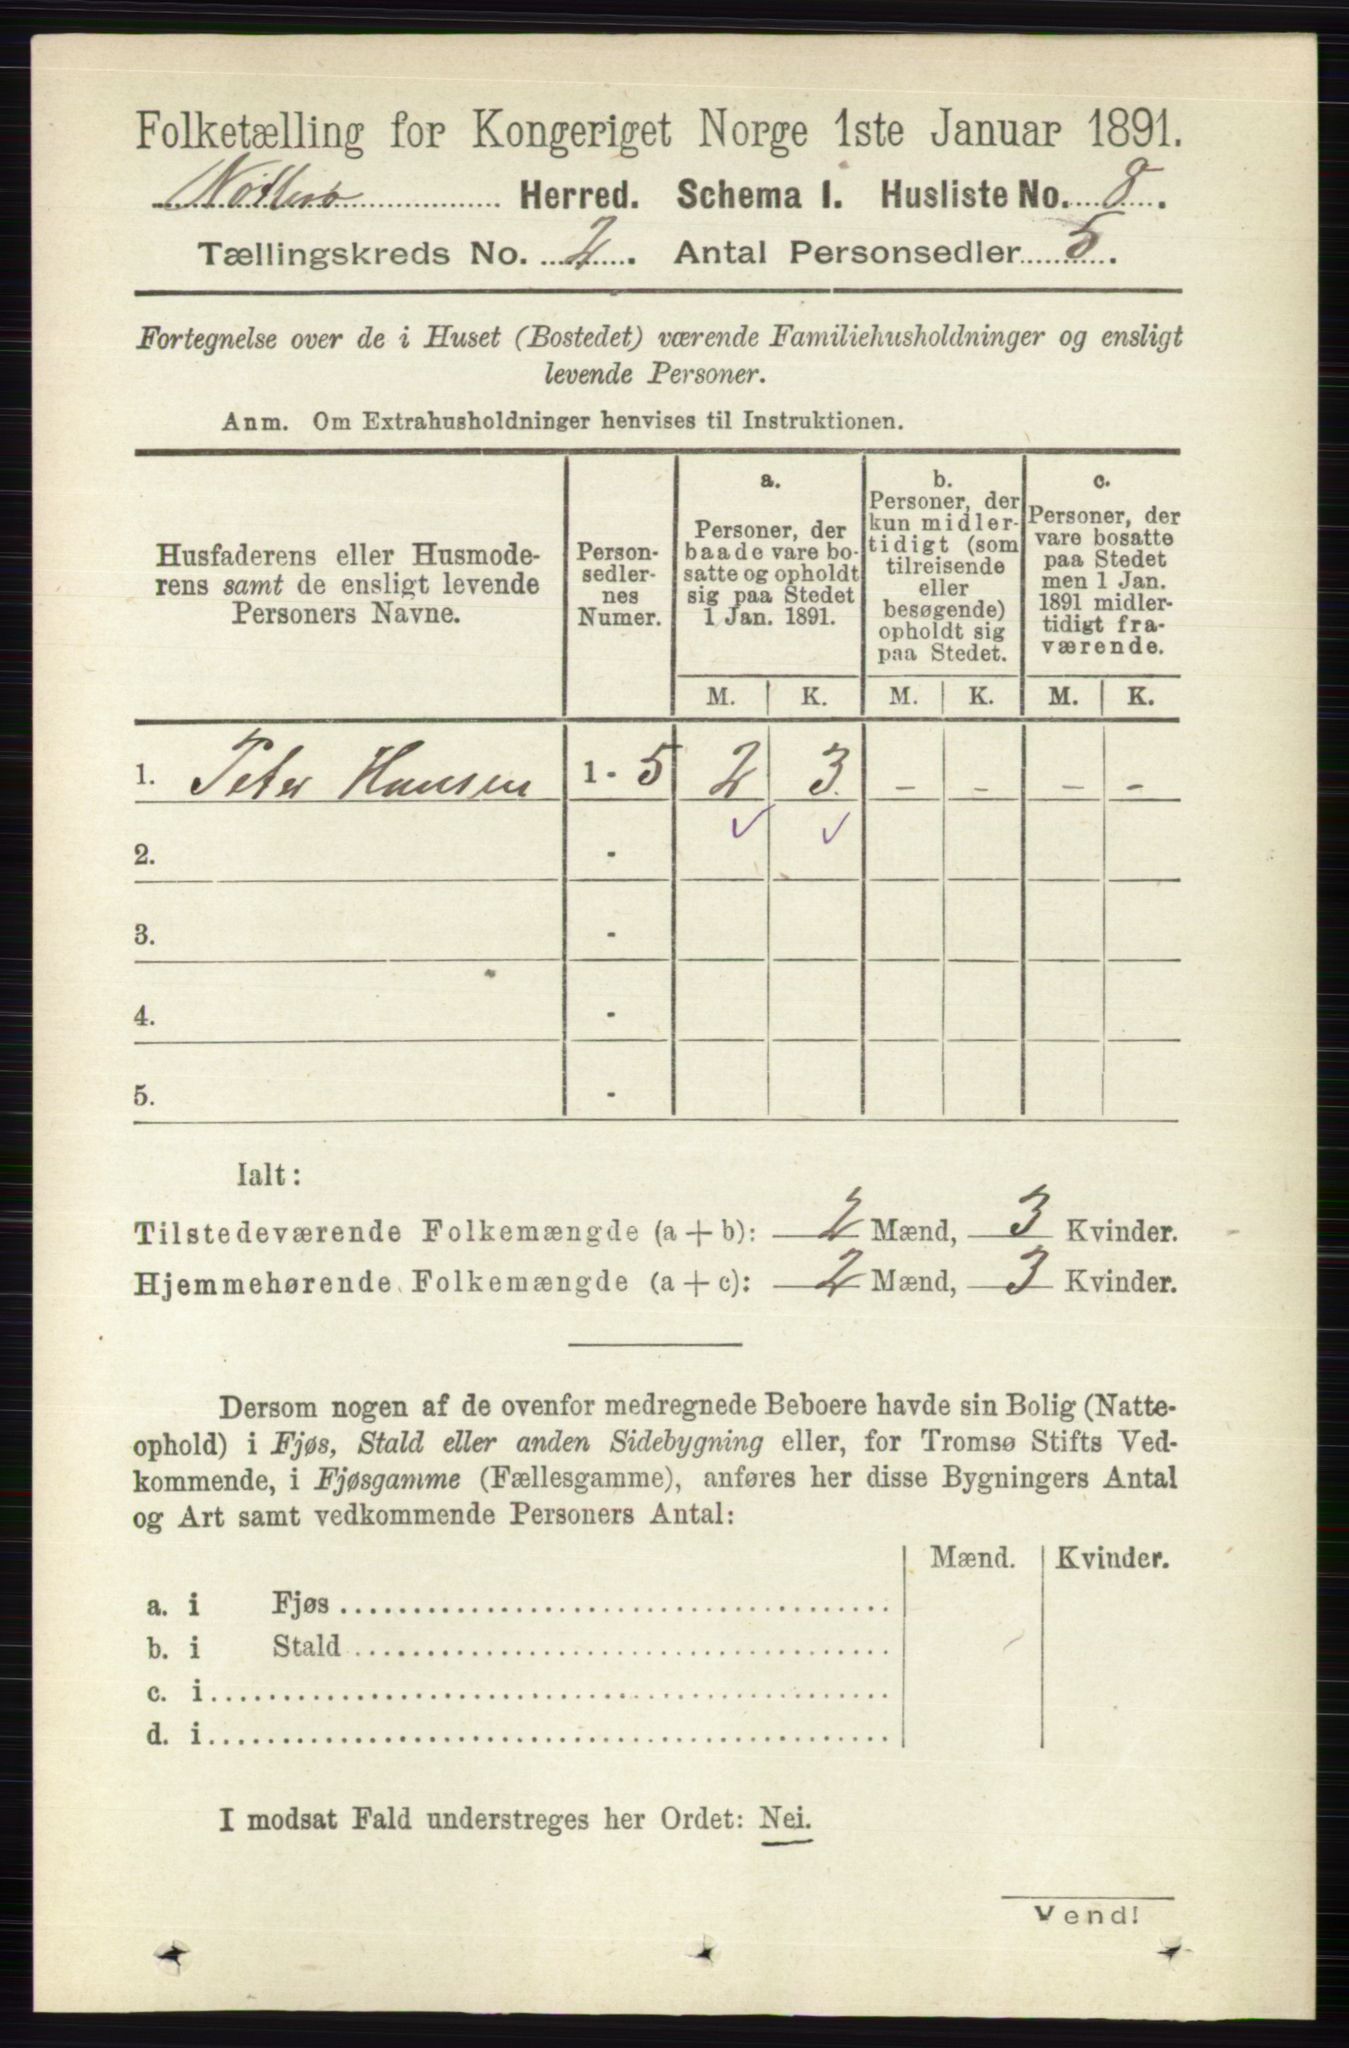 Folketælling for Kongeriget Norge 1ste Januar 1891.
Nötterö Herred. Schema I. Husliste No. 8.
Tællingskreds No. 2. Antal Personsedler 5.
Fortegnelse over de i Huset (Bostedet) værende Familiehusholdninger og ensligt
levende Personer.
Anm. Om Extrahusholdninger henvises til Instruktionen.
Husfaderens eller Husmode-
rens samt de ensligt levende
Personers Navne.
Person-
sedler-
nes
Numer.
a.
Personer, der
baade vare bo-
satte og opholdt
sig paa Stedet
1 Jan. 1891.
b.
Personer, der
kun midler-
tidigt (som
tilreisende
eller
besøgende)
opholdt sig
paa Stedet.
c.
Personer, der
vare bosatte
paa Stedet
men 1 Jan.
1891 midler-
tidigt fra-
værende.
M. K. M. K. M. K.
1. Peter Hansen 1 - 5 2 3 - - - -
2. -
3. -
4. -
5. -
Ialt:
Tilstedeværende Folkemængde (a + b): 2 Mænd, 3 Kvinder.
Hjemmehørende Folkemængde (a + c): 2 Mænd, 3 Kvinder.
Dersom nogen af de ovenfor medregnede Beboere havde sin Bolig (Natte-
ophold) i Fjøs, Stald eller anden Sidebygning eller, for Tromsø Stifts Ved-
kommende, i Fjøsgamme (Fællesgamme), anføres her disse Bygningers Antal
og Art samt vedkommende Personers Antal:
Mænd. Kvinder.
a. i Fjøs
b. i Stald
c. i
d. i
I modsat Fald understreges her Ordet: Nei.
Vend!